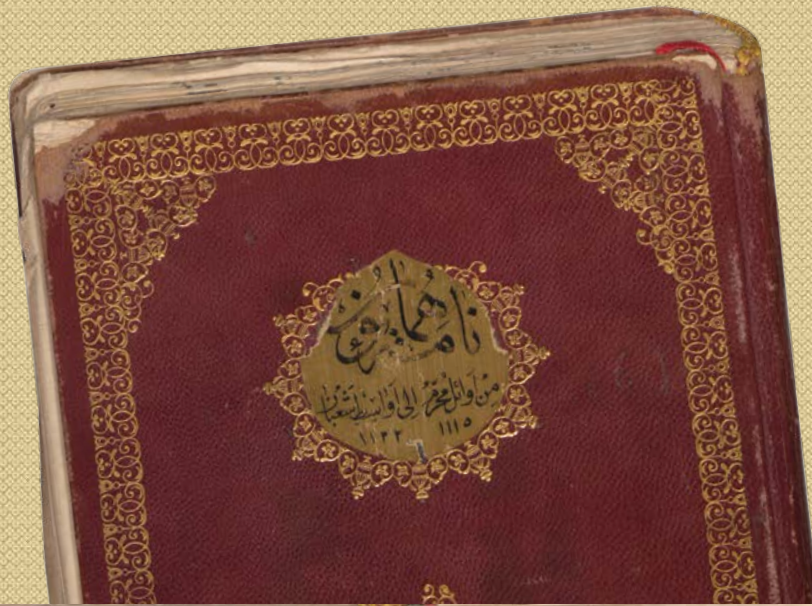 نامه همايون
من اوائل محرم الى اواسط شعبان
١١١٥ ١١٣٢